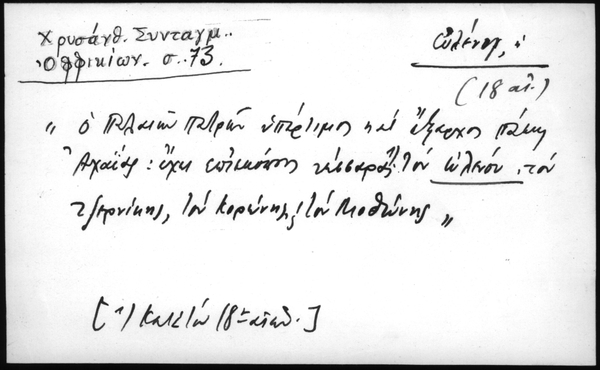 Χρυσάνθ. Συνταγμ..
Ὀφφικίων. σ. 73.
Ὠλένης, ἡ
(18 αἰ.)
„ ὁ Παλαιῶν Πατρῶν ὑπέρτιμος καὶ ἔξαρχος πάσης
Ἀχαΐας: ἔχει ἐπισκόπους τέσσαρας¹⁾ τὸν Ὠλενόν, τὸν
τζερνίκης, τὸν Κορώνης, τὸν Μοθώνης „
[¹) Κατὰ τὸν 18ον αἰῶν.]